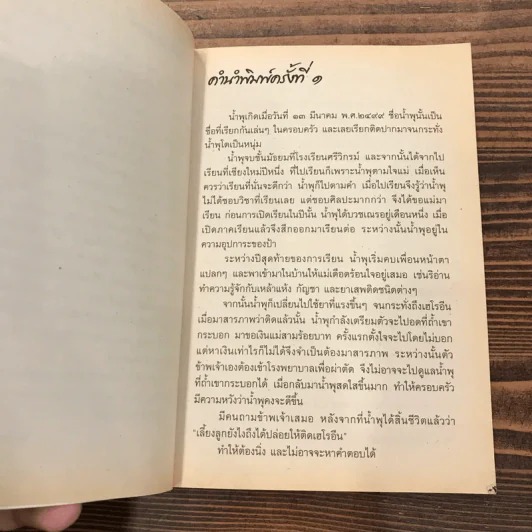 คำนำพิมพ์ครั้งที่ ๑
น้ำพุเกิดเมื่อวันที่ ๑๓ มีนาคม พ.ศ.๒๔๙๙ ชื่อน้ำพุนั้นเป็น
ชื่อที่เรียกกันเล่นๆ ในครอบครัว และเลยเรียกติดปากมาจนกระทั่ง
น้ำพุโตเป็นหนุ่ม
น้ำพุจบชั้นมัธยมที่โรงเรียนศรีวิกรม์ และจากนั้นได้จากไป
เรียนที่เชียงใหม่ปีหนึ่ง ที่ไปเรียนก็เพราะน้ำพุตามใจแม่ เมื่อเห็น
ควรว่าเรียนที่นั่นจะดีกว่า น้ำพุก็ไปตามคำ เมื่อไปเรียนจึงรู้ว่าน้ำพุ
ไม่ได้ชอบวิชาที่เรียนเลย แต่ชอบศิลปะมากกว่า จึงได้ขอแม่มา
เรียน ก่อนการเปิดเรียนในปีนั้น น้ำพุได้บวชเณรอยู่เดือนหนึ่ง เมื่อ
เปิดภาคเรียนแล้วจึงสึกออกมาเรียนต่อ ระหว่างนั้นน้ำพุอยู่ใน
ความอุปการะของป้า
ระหว่างปีสุดท้ายของการเรียน น้ำพุเริ่มคบเพื่อนหน้าตา
แปลกๆ และพาเข้ามาในบ้านให้แม่เดือดร้อนใจอยู่เสมอ เช่นริอ่าน
ทำความรู้จักกับเหล้าแห้ง กัญชา และยาเสพติดชนิดต่างๆ
จากนั้นน้ำพุก็เปลี่ยนไปใช้ยาที่แรงขึ้นๆ จนกระทั่งถึงเฮโรอีน
เมื่อมาสารภาพว่าติดแล้วนั้น น้ำพุกำลังเตรียมตัวจะไปอดที่ถ้ำเขา
กระบอก มาขอเงินแม่สามร้อยบาท ครั้งแรกตั้งใจจะไปโดยไม่บอก
แต่หาเงินเท่าไรก็ไม่ได้จึงจำเป็นต้องมาสารภาพ ระหว่างนั้นตัว
ข้าพเจ้าเองต้องเข้าโรงพยาบาลเพื่อผ่าตัด จึงไม่อาจจะไปดูแลน้ำพุ
ที่ถ้ำเขากระบอกได้ เมื่อกลับมาน้ำพุสดใสขึ้นมาก ทำให้ครอบครัว
มีความหวังว่าน้ำพุคงจะดีขึ้น
มีคนถามข้าพเจ้าเสมอ หลังจากที่น้ำพุได้สิ้นชีวิตแล้วว่า
"เลี้ยงลูกยังไงถึงได้ปล่อยให้ติดเฮโรอีน"
ทำให้ต้องนิ่ง และไม่อาจจะหาคำตอบได้